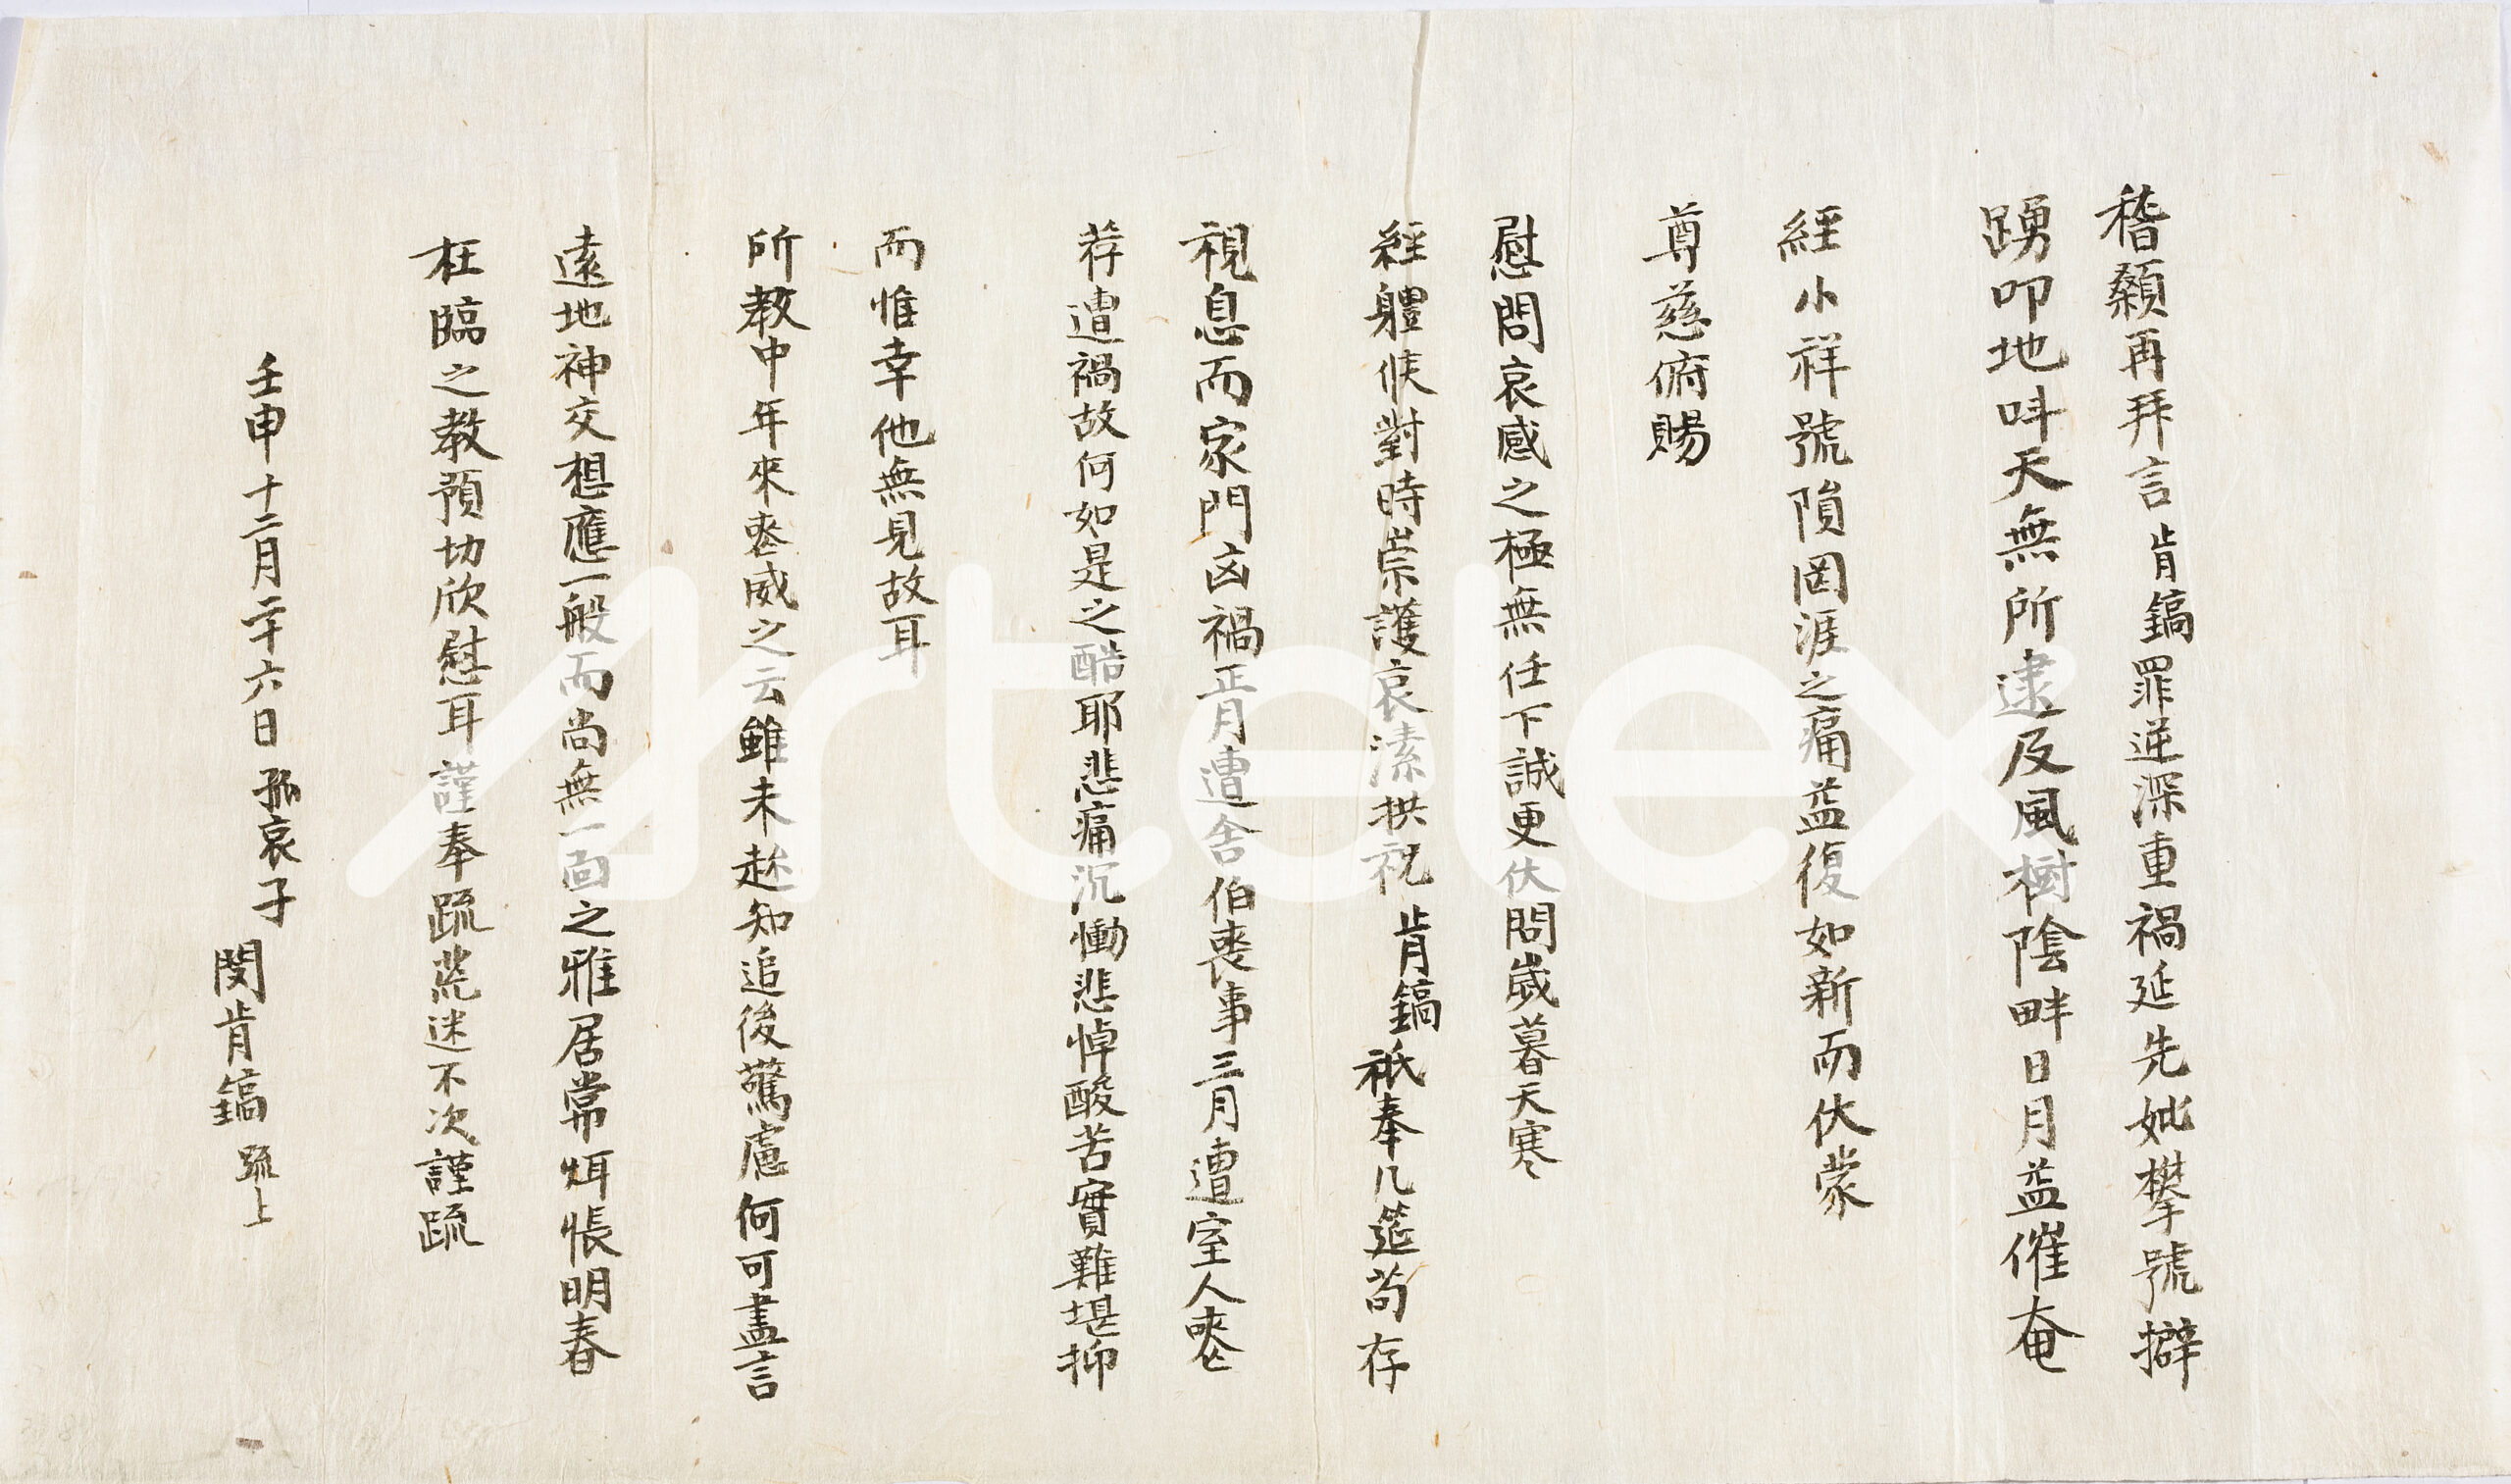 稽顙再拜言肯鎬罪逆深重禍延先妣攀號擗
踴叩地叫天無所逮及風樹陰畔日月益催奄
經小祥號隕罔涯之痛益復如新而伏蒙
尊慈俯賜
慰問哀感之極無任下誠更伏問歲暮天寒
經軆候對時崇護哀溸拱祝肯鎬祇奉几筵苟存
視息而家門凶禍正月遭舍伯喪事三月遭室人喪
荐遭禍故何如是之酷耶悲痛沉慟悲悼酸苦實難堪抑
而惟幸他無見故耳
所教中年來喪威之云雖未趁知追後驚慮何可盡言
遠地神交想應一般而尚無一面之雅居常炯悵明春
枉臨之教預切欣慰耳謹奉疏荒迷不次謹疏
壬申十二月二十六日孤哀子閔肯鎬疏上
artelex